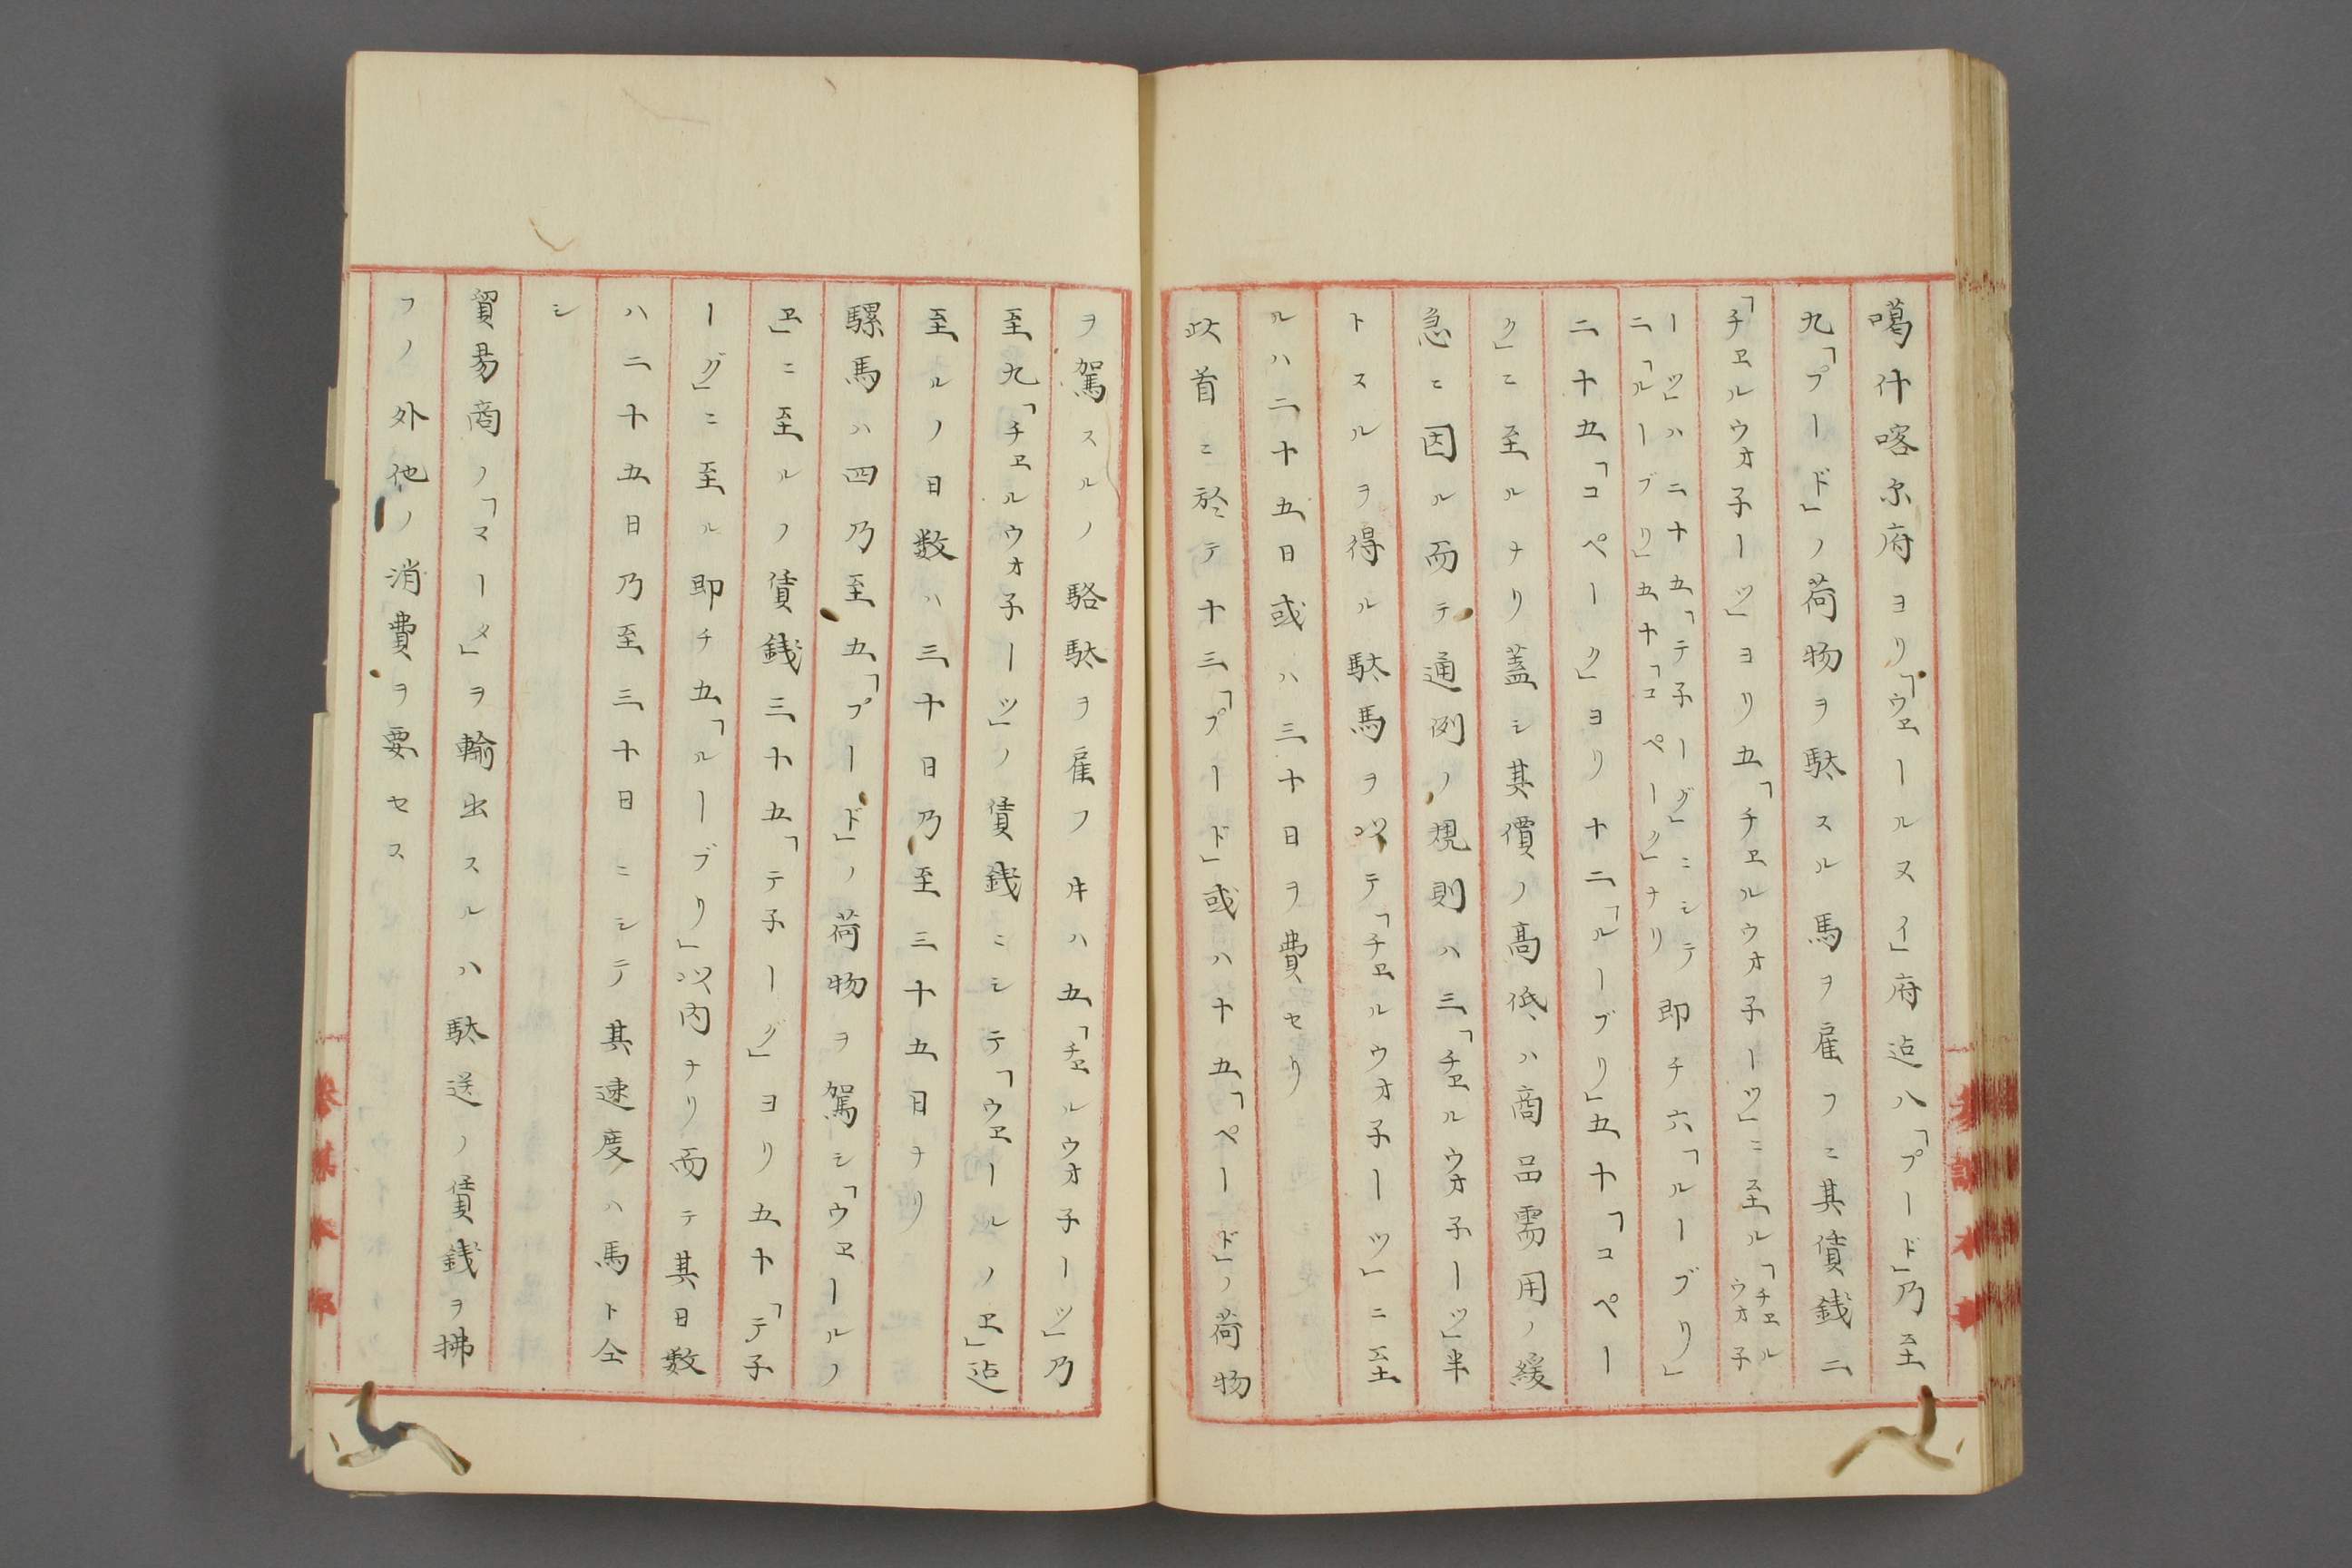 噶什喀尓府ヨリ「ウヱールヌイ」府迠八「プード」乃至
九「プード」ノ荷物ヲ駄スル馬ヲ雇フニ其賃銭二
「チヱルウオ子ーツ」ヨリ五「チヱルウオ子ーツ」ニ至ル「チヱルウオ子
ーツ」ハ二十五「テ子ーグ」ニシテ
二「ルーブリ」五十「コペーク」ナリ即チ六「ルーブリ」
二十五「コペーク」ヨリ十二「ルーブリ」五十「コペー
ク」ニ至ルナリ蓋シ其價ノ髙低ハ商品需用ノ緩
急ニ因ル而テ通例ノ規則ハ三「チヱルウオ子ーツ」半
トスルヲ得ル駄馬ヲ以テ「チヱルウオ子ーツ」ニ至
ルハ二十五日或ハ三十日ヲ費セリ
此首ニ於テ十三「プード」或ハ十五「ペード」ノ荷物
ヲ駕スルノ駱駄ヲ雇フキハ五「チヱルウオ子ーツ」乃
至九「チヱルウオ子ーツ」ノ賃銭ニシテ「ウヱールノヱ」迠
至ルノ日数ハ三十日乃至三十五日ナリ
騾馬ハ四乃至五「プード」ノ荷物ヲ駕シ「ウヱールノ
ヱ」ニ至ルノ賃銭三十五「テ子ーグ」ヨリ五十「テ子
ーグ」ニ至ル即チ五「ルーブリ」以内ナリ而テ其日数
ハ二十五日乃至三十日ニシテ其速度ハ馬ト仝
シ
貿易商ノ「マータ」ヲ輸出スルハ駄送ノ賃銭ヲ拂
フノ外他ノ消費ヲ要セス